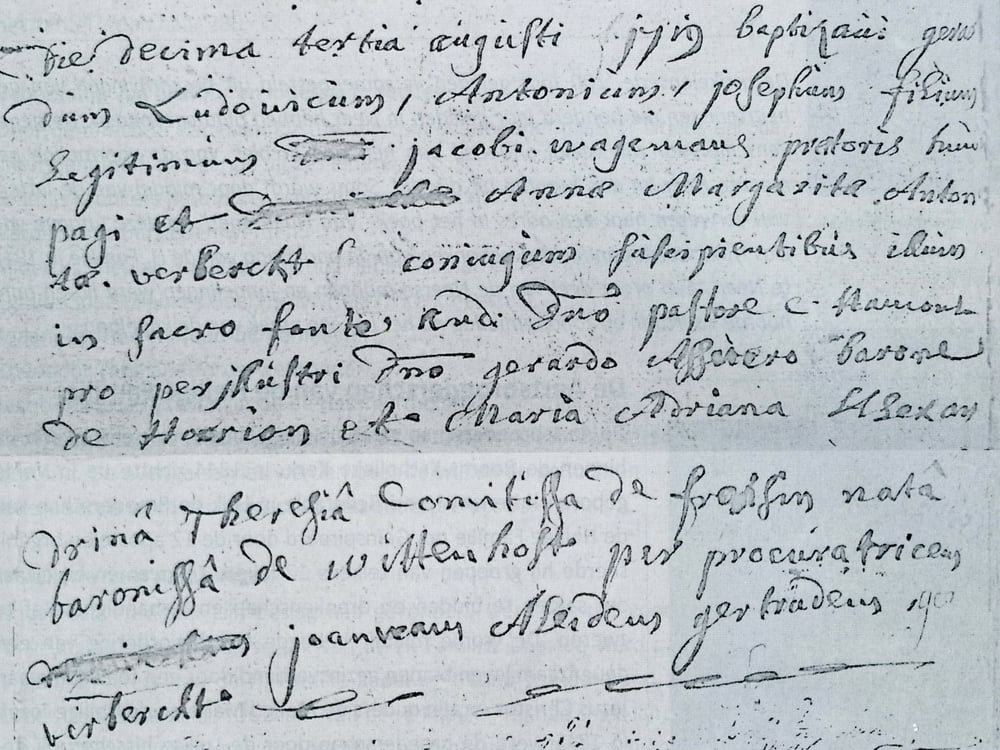 die decima tertia augusti baptizavi gerar
dum Ludovicum, Antonium, josephum filium
legitimum jacobi wagemans pretoris huius
pagi et Annæ Margaritæ Anton
tæ verberckt conjugum suscipientibus illum
in sacro fonte Rndo Dno pastore e Hamont
pro perillustri Dno gerardo Assuero barone
de Horion et Maria Adriana
drinâ Theresiâ Comitissâ de fressin natâ
baronissâ de wittenhost per procuratricem
joannam Aleidem gertrudem
verberckt